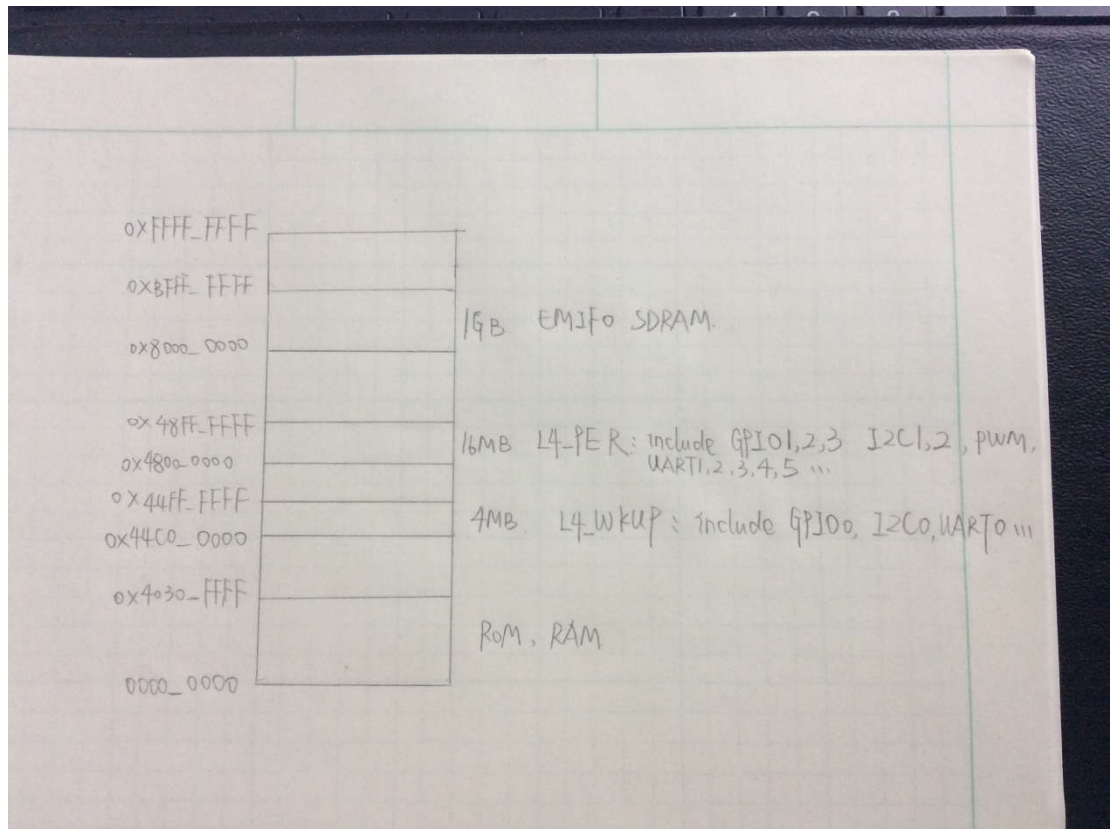 0xFFFF_FFFF
0xBFFF_FFFF
1GB EMIF0 SDRAM.
0x8000_0000
0x48FF_FFFF
16MB L4_PER: include GPIO1,2,3 I2C1,2, PWM,
UART1,2,3,4,5 ...
0x4800_0000
0x44FF_FFFF
4MB. L4_WKUP: include GPIO0, I2C0, UART0 ...
0x44C0_0000
0x4030_FFFF
ROM, RAM
0000_0000